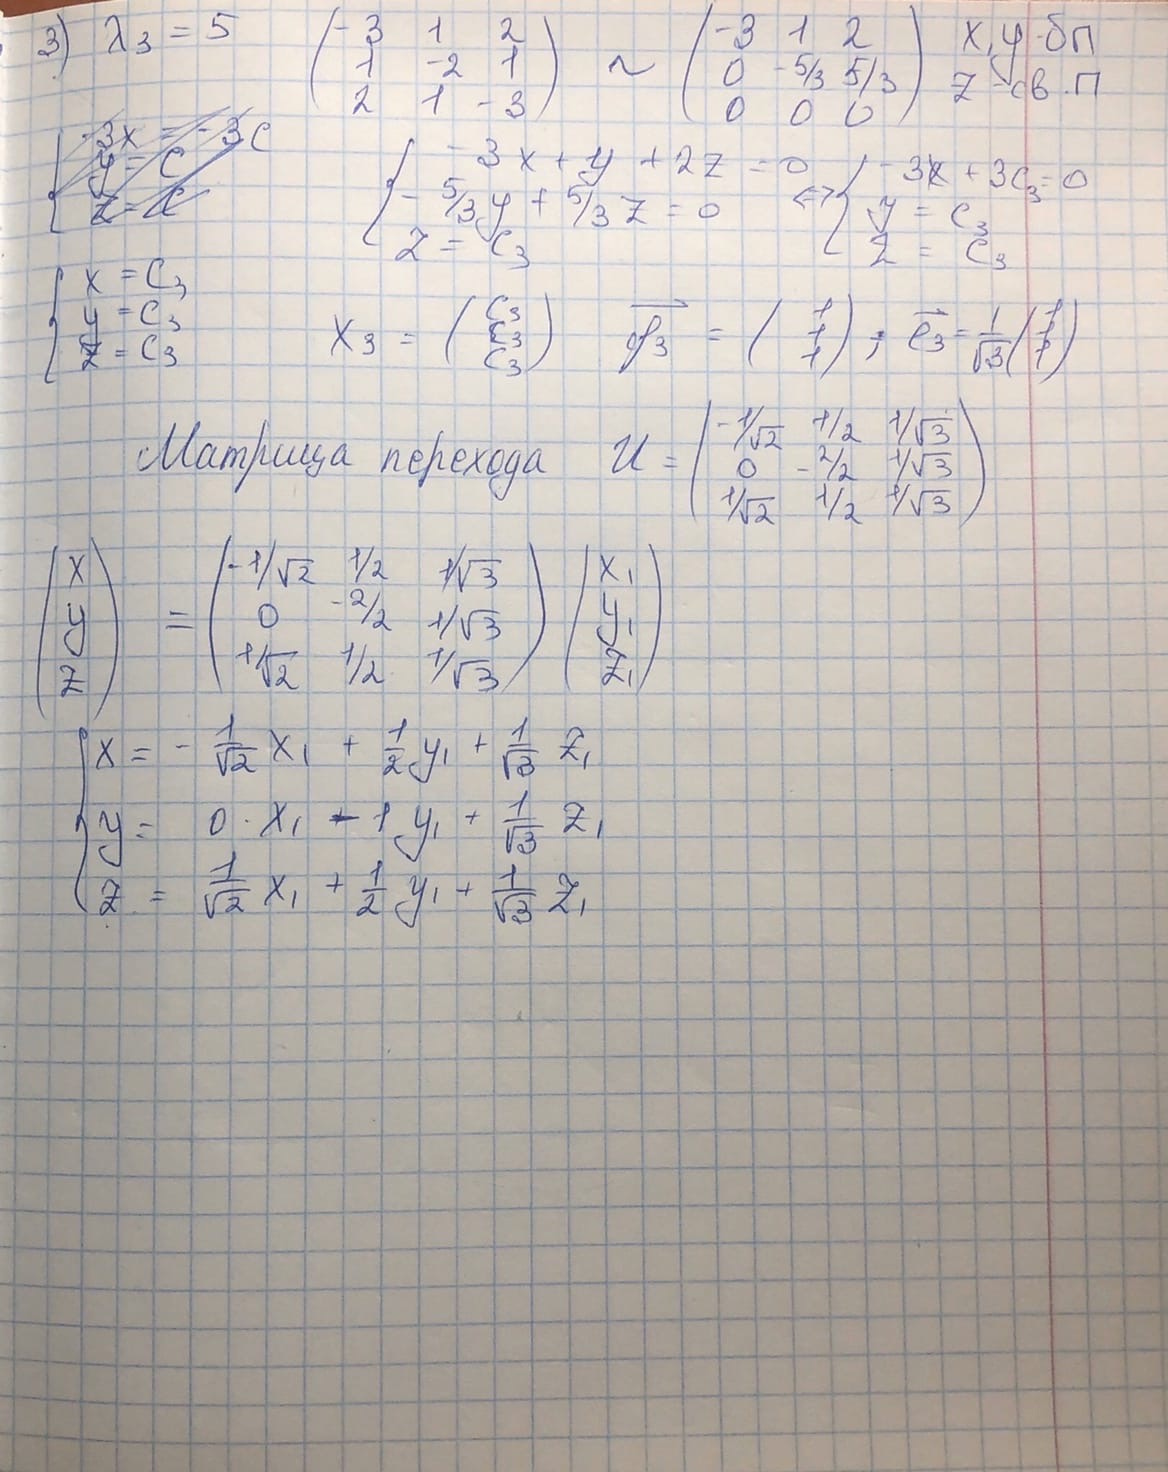 3) λ₃ = 5 (-3 1 2; 1 -2 1; 2 1 -3) ~ (-3 1 2; 0 -5/3 5/3; 0 0 0) x, y - бп
z - св. п
{-3x = -3c; y = c; z = c
{-3x + y + 2z = 0; -5/3 y + 5/3 z = 0; z = c₃ <-> {-3x + 3c₃ = 0; y = c₃; z = c₃
{x = c₃; y = c₃; z = c₃ x₃ = (c₃; c₃; c₃) φ₃ = (1; 1; 1); e₃ = 1/√3 (1; 1; 1)
Матрица перехода U = (-1/√2 1/2 1/√3; 0 -2/2 1/√3; 1/√2 1/2 1/√3)
(x; y; z) = (-1/√2 1/2 1/√3; 0 -2/2 1/√3; 1/√2 1/2 1/√3) (x₁; y₁; z₁)
{x = - 1/√2 x₁ + 1/2 y₁ + 1/√3 z₁
y = 0 · x₁ - 1 y₁ + 1/√3 z₁
z = 1/√2 x₁ + 1/2 y₁ + 1/√3 z₁